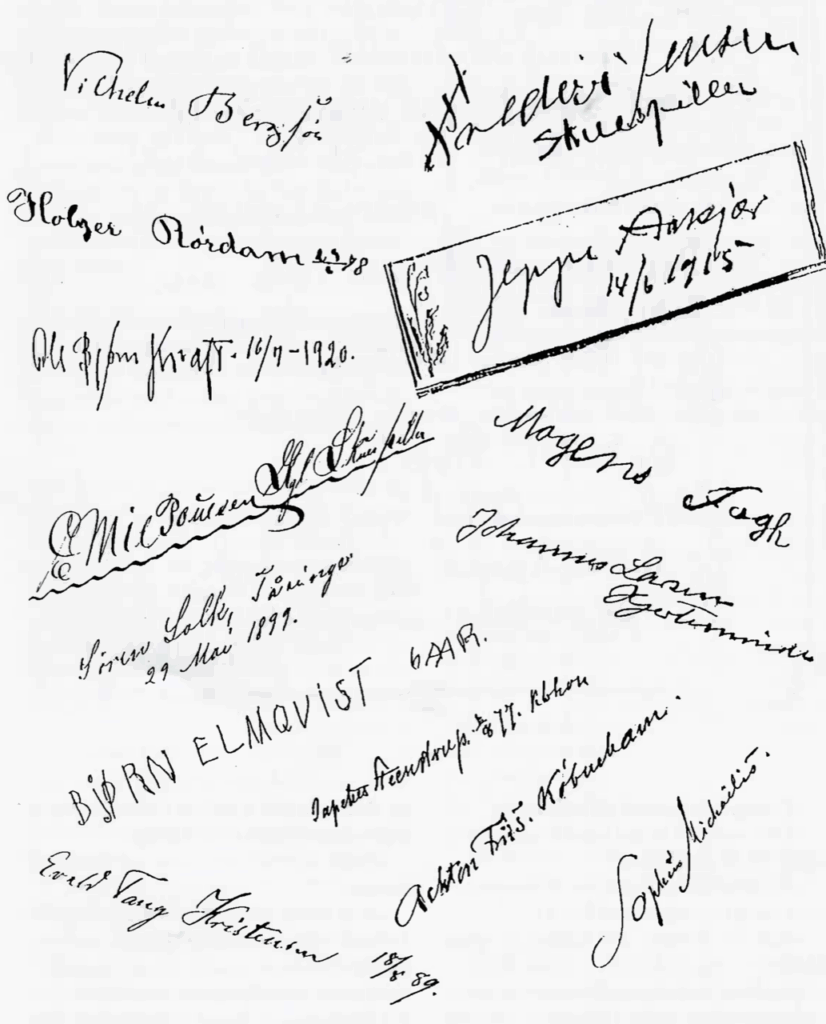 Vilhelm Bergsøe
Frederik Jensen
Skuespiller
Holger Rørdam
Jeppe Aakjær
14/6 1915
Ole Bjørn Kraft. 16/7-1920.
Emil Poulsen Kgl Skuespiller
Mogens Fogh
Johannes Larsen
Kjerteminde
Søren Lolk, Tåsinge
29 Mai 1899.
BJØRN ELMQVIST 6 AAR.
Japetus Steenstrup. 77. Kbhvn
Achton Friis. København.
Sophus Michaëlis.
Evald Tang Kristensen
18/8 89.